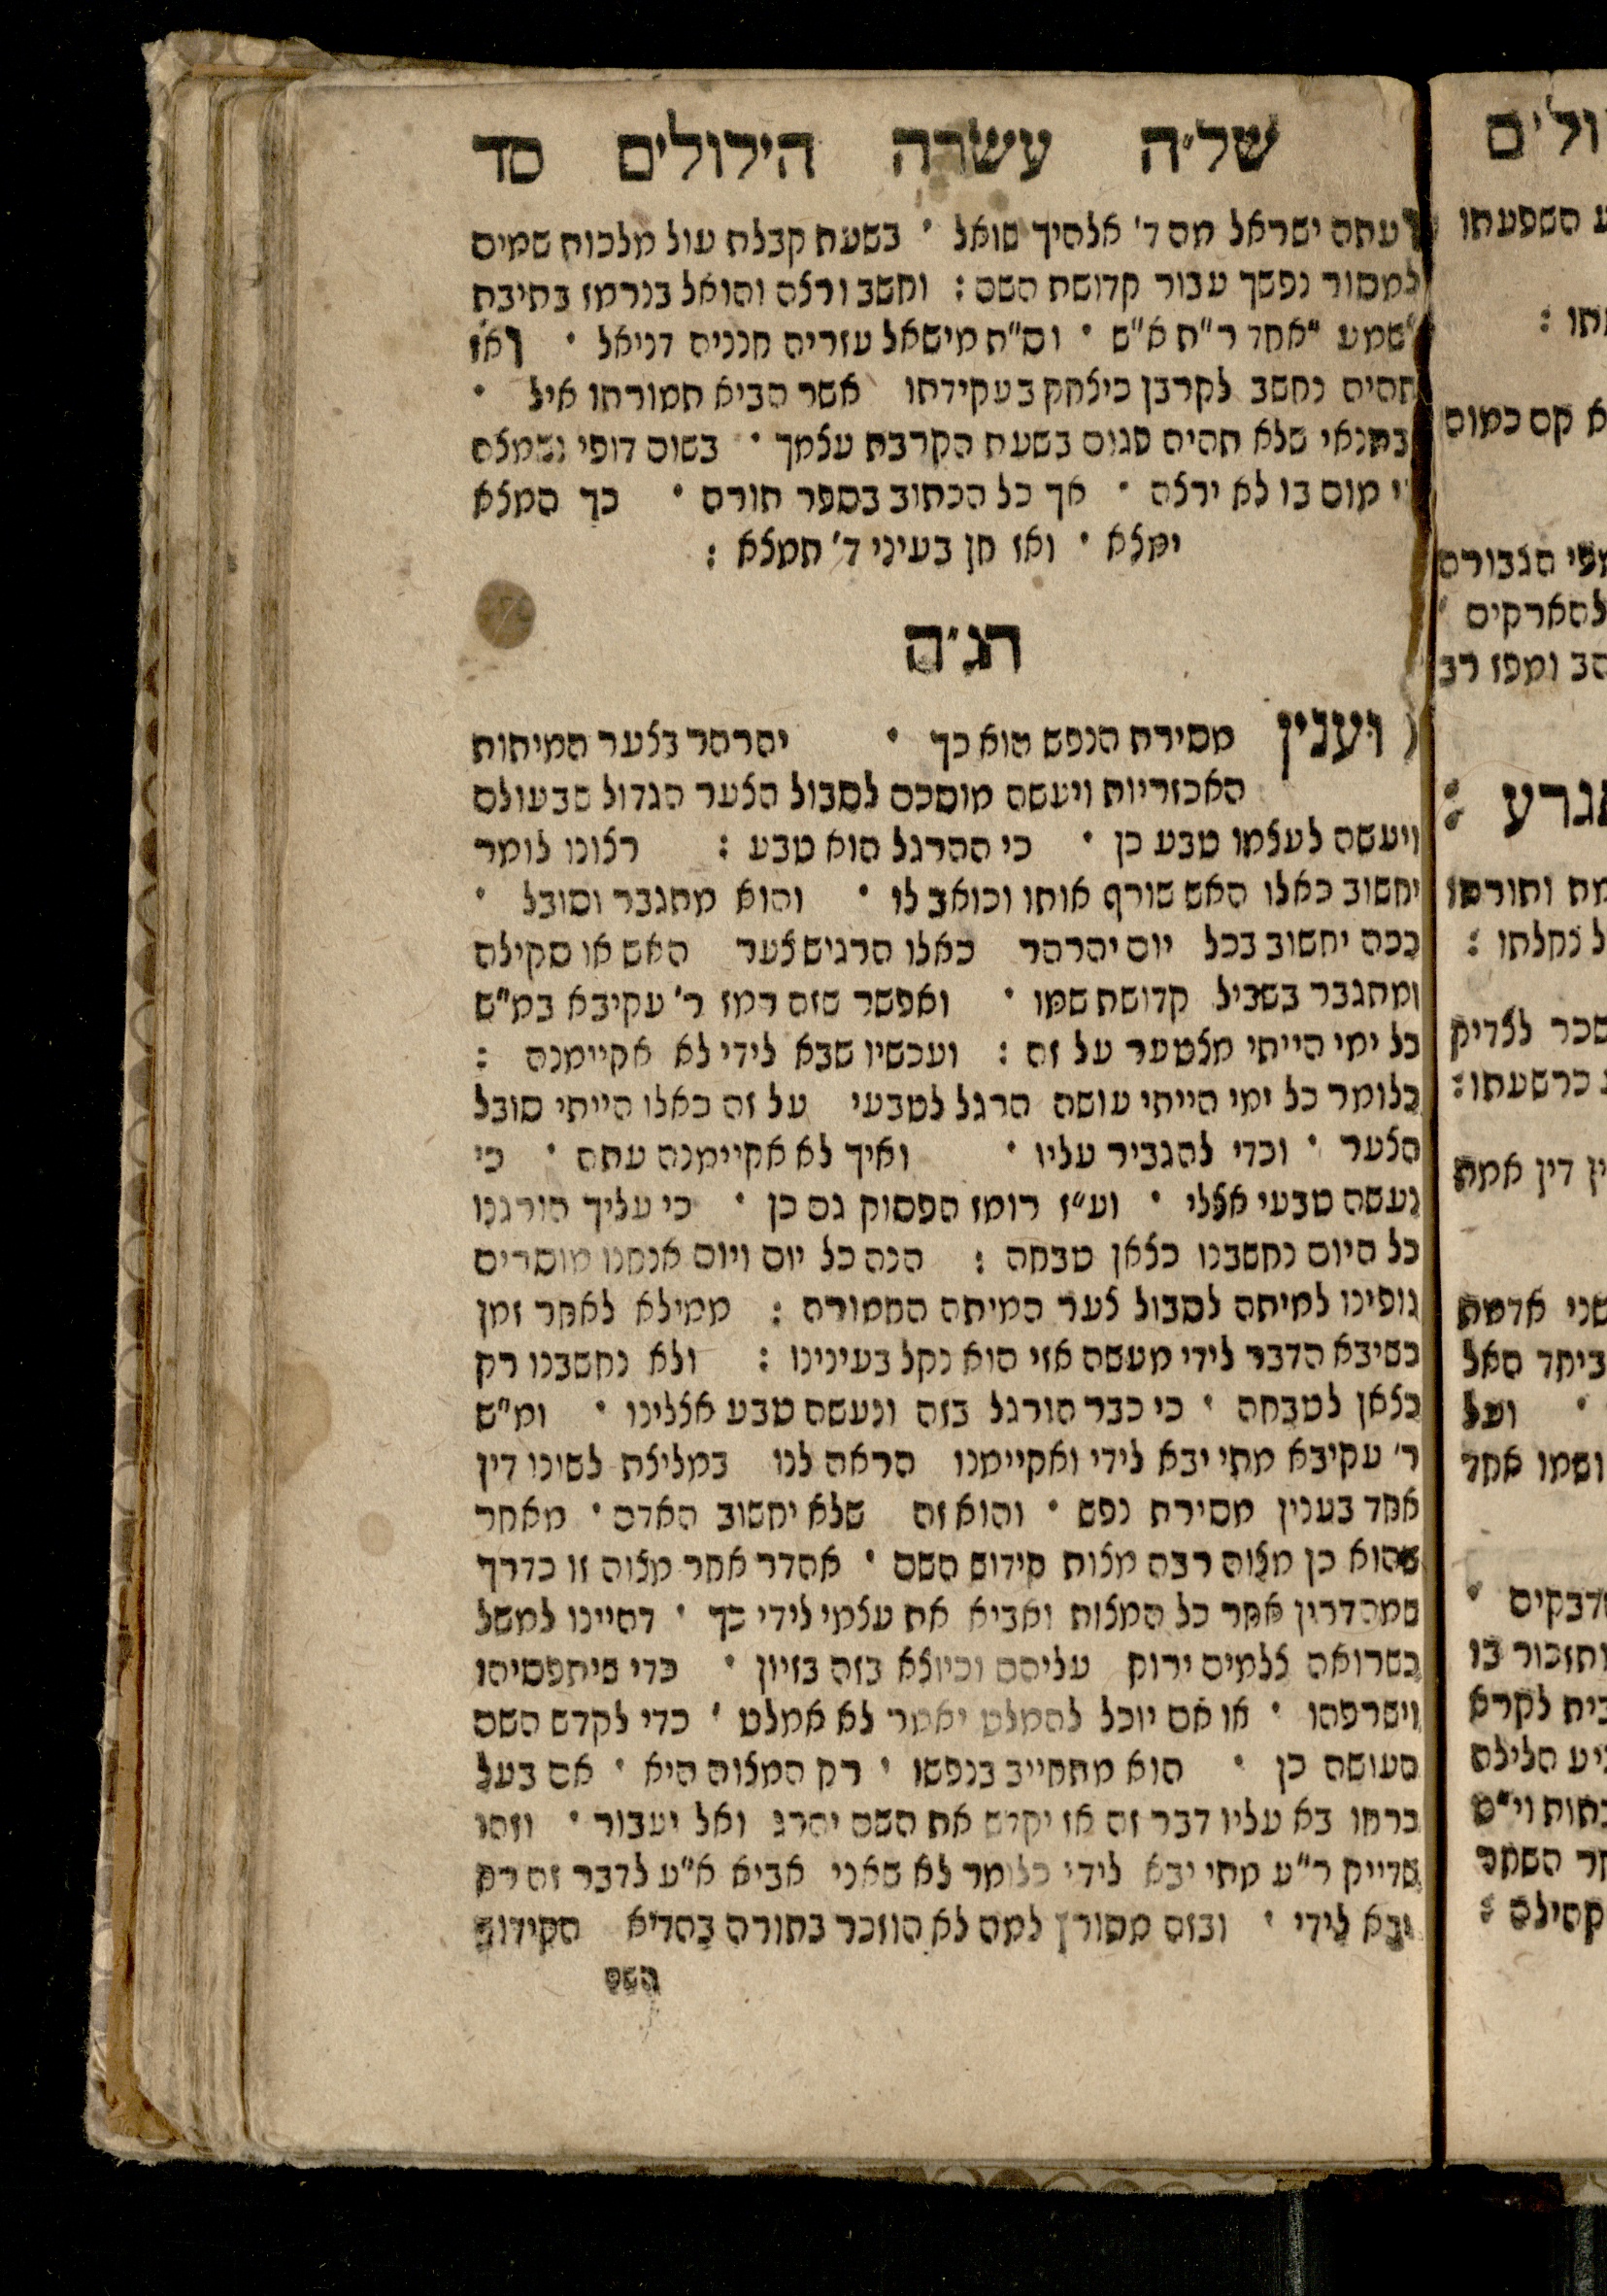 של״ה עשרה הילולים סד
ועתה ישראל מה ד' אלהיך שואל • בשעת קבלת עול מלכות שמים
למסור נפשך עבור קדושת השם : וחשב ורצה והואל בנרמז בתיבת
שמע "אחד ר"ת א"ש • וס"ת מישאל עזריה חנניה דניאל • ואז
תהיה נחשב לקרבן כיצחק בעקידתו אשר הביא תמורתו איל •
ובתנאי שלא תהיה פגום בשעת הקרבת עצמך • בשום דופי ושמצה
כי מום בו לא ירצה • אך כל הכתוב בספר תורה • כך המצא
ימצא • ואז חן בעיני ד' תמצא :
הג״ה
( וענין מסירת הנפש הוא כך • יהרהר בצער המיתות
האכזריות ויעשה מוסכם לסבול הצער הגדול שבעולם
ויעשה לעצמו טבע כן • כי ההרגל הוא טבע : רצונו לומר
יחשוב כאלו האש שורף אותו וכואב לו • והוא מתגבר וסובל •
ככה יחשוב בכל יום יהרהר כאלו הרגיש צער האש או סקילה
ומתגבר בשביל קדושת שמו • ואפשר שזה רמז ר' עקיבא במ"ש
כל ימי הייתי מצטער על זה : ועכשיו שבא לידי לא אקיימנה :
כלומר כל ימי הייתי עושה הרגל לטבעי על זה כאלו הייתי סובל
הצער • וכדי להגביר עליו • ואיך לא אקיימנה עתה • כי
נעשה טבעי אצלי • וע"ז רומז הפסוק גם כן • כי עליך הורגנו
כל היום נחשבנו כצאן טבחה : הנה כל יום ויום אנחנו מוסרים
גופינו למיתה לסבול צער המיתה החמורה : ממילא לאחר זמן
כשיבא הדבר לידי מעשה אזי הוא נקל בעינינו : ולא נחשבנו רק
כצאן לטבחה • כי כבר הורגל בזה ונעשה טבע אצלינו • ומ"ש
ר' עקיבא מתי יבא לידי ואקיימנו הראה לנו במליצת לשונו דין
אחד בענין מסירת נפש • והוא זה שלא יחשוב האדם • מאחר
שהוא כן מצוה רבה מצות קידוש השם • אהדר אחר מצוה זו כדרך
שמהדרין אחר כל המצות ואביא את עצמי לידי כך • דהיינו למשל
כשרואה צלמים ירוק עליהם וכיוצא בזה בזיון • כדי שיתפסיהו
וישרפהו • או אם יוכל להמלט יאמר לא אמלט • כדי לקדש השם
העושה כן • הוא מתחייב בנפשו • רק המצוה היא • אם בעל
כרחו בא עליו דבר זה אז יקדש את השם יהרג ואל יעבור • וזהו
שדייק ר"ע מתי יבא לידי כלומר לא שאני אביא א"ע לדבר זה רק
יבא לידי • ובזה מתורץ למה לא הוזכר בתורה בהדיא הקידוש
השם